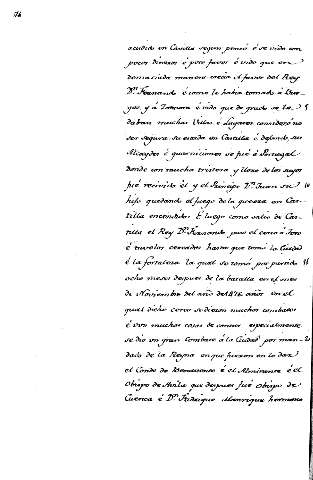 76
acudido en Castilla segun pensó é se vido con
pocos dineros é poco favor é vido que en
demasiada manera crecia el favor del Rey
Dn. Fernando é como le habia tomado á Bur
gos y á Zamora é vido que de grado se le 5
daban muchas Villas é Lugares consideró no
ser segura su estada en Castilla é dejando sus
Alcaydes é guarniciones se fué á Portugal
donde con mucha tristeza y lloro de los suyos
fué recivido él y el Principe Dn. Juan su 10
hijo quedando el fuego de la guerra en Cas
tilla encendido. É luego como salio de Cas
tilla el Rey Dn. Fernando puso el cerco á Toro
é tuvolos cercados hasta que tomó la Ciudad
é la fortaleza la qual se tomó por partido 15
ocho meses despues de la batalla en el mes
de Noviembre del año de 1476 años en el
qual dicho cerco se dieron muchos combates
é ovo muchas cosas de contar especialmente
se dio un gran combate á la Ciudad por man- 20
dado de la Reyna en que fueron en lo dar
el Conde de Benavente é el Almirante é el
Obispo de Avila que despues fué Obispo de
Cuenca é Dn. Fadrique Manrique hermano